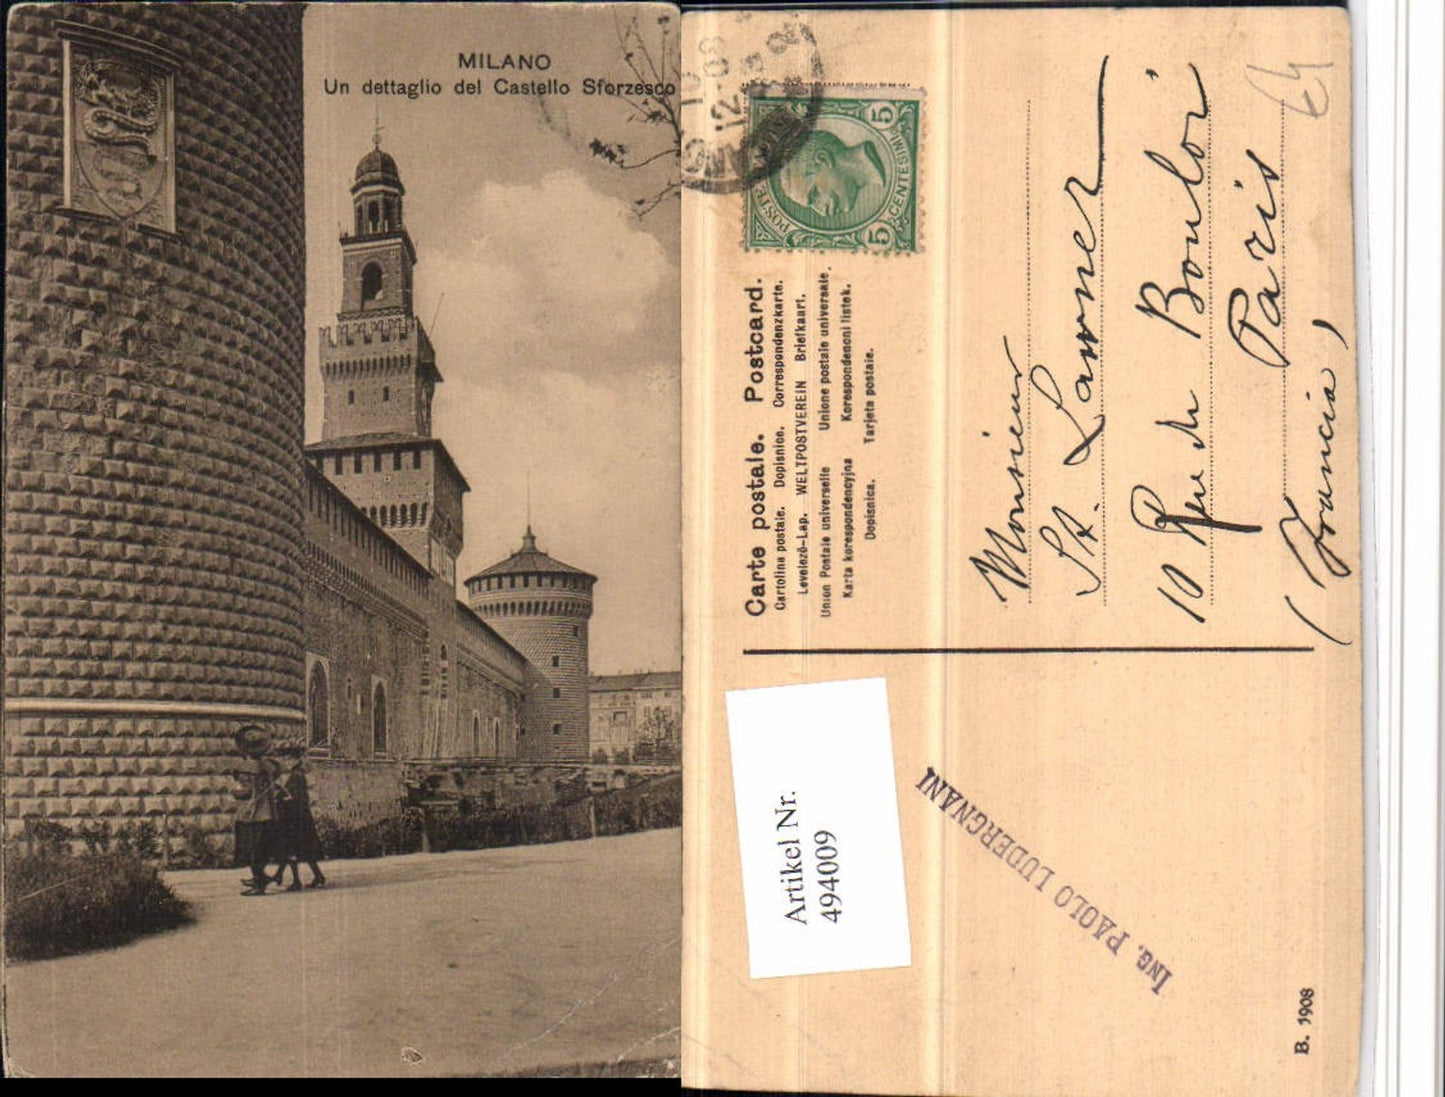 MILANO
Un dettaglio del Castello Sforzesco
POSTE
CENTESIMI
5
5
12
08
Carte postale. Postcard.
Cartolina postale. Dopisnice. Correspondenzkarte.
Levelező-Lap. WELTPOSTVEREIN Briefkaart.
Union Postale universelle Unione postale universale.
Karta korespondencyjna Korespondenoni listek.
Dopisnica. Tarjeta postale.
Monsieur
St.
10 Rue du Bouloi
Paris
(Francia)
Artikel Nr.
494009
ING. PAOLO LUDERGNANI
B. 1908